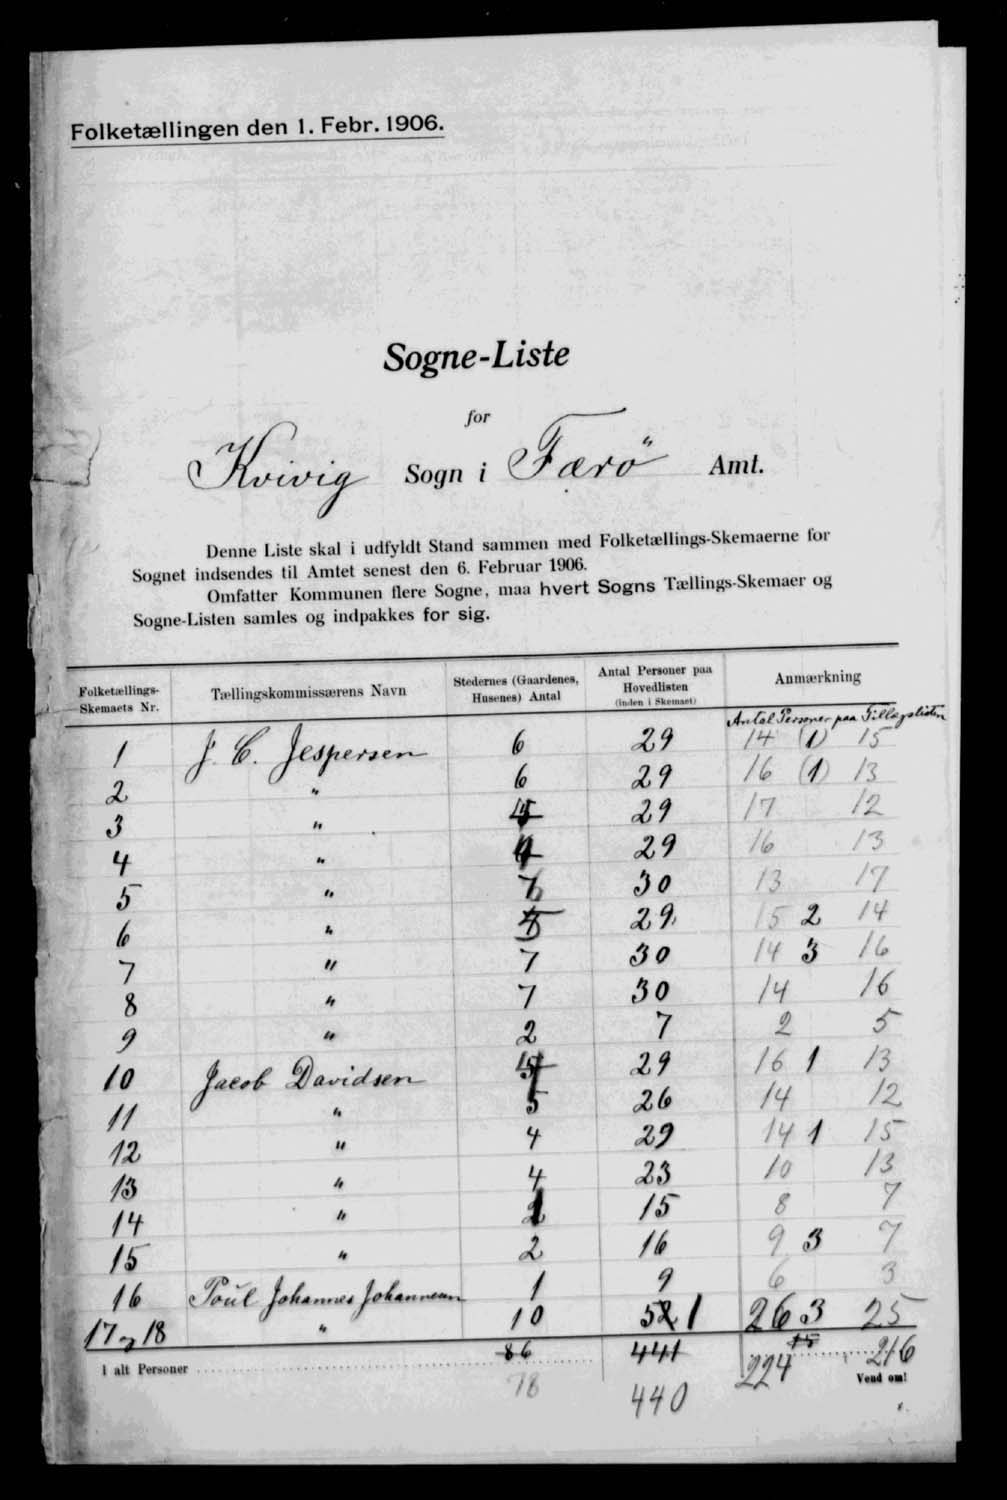 Folketællingen den 1. Febr. 1906.
Sogne-Liste
for
Kvivig Sogn i Færö Amt.
Denne Liste skal i udfyldt Stand sammen med Folketællings-Skemaerne for
Sognet indsendes til Amtet senest den 6. Februar 1906.
Omfatter Kommunen flere Sogne, maa hvert Sogns Tællings-Skemaer og
Sogne-Listen samles og indpakkes for sig.
Folketællings-Skemaets Nr. Tællingskommissærens Navn Stedernes (Gaardenes, Husenes) Antal Antal Personer paa Hovedlisten (inden i Skemaet) Anmærkning
Antal Personer paa Tillægslisten
1 J. C. Jespersen 6 29 14 (1) 15
2 " 6 29 16 (1) 13
3 " 29 17 12
4 " 29 16 13
5 " 7 30 13 17
6 " 29 15 2 14
7 " 7 30 14 3 16
8 " 7 30 14 16
9 " 2 7 2 5
10 Jacob Davidsen 29 16 1 13
11 " 5 26 14 12
12 " 4 29 14 1 15
13 " 4 23 10 13
14 " 15 8 7
15 " 2 16 9 3 7
16 Poul Johannes Johannesen 1 9 6 3
17 og 18 " 10 51 26 3 25
I alt Personer 86 441 15 216
78 440 224
Vend om!